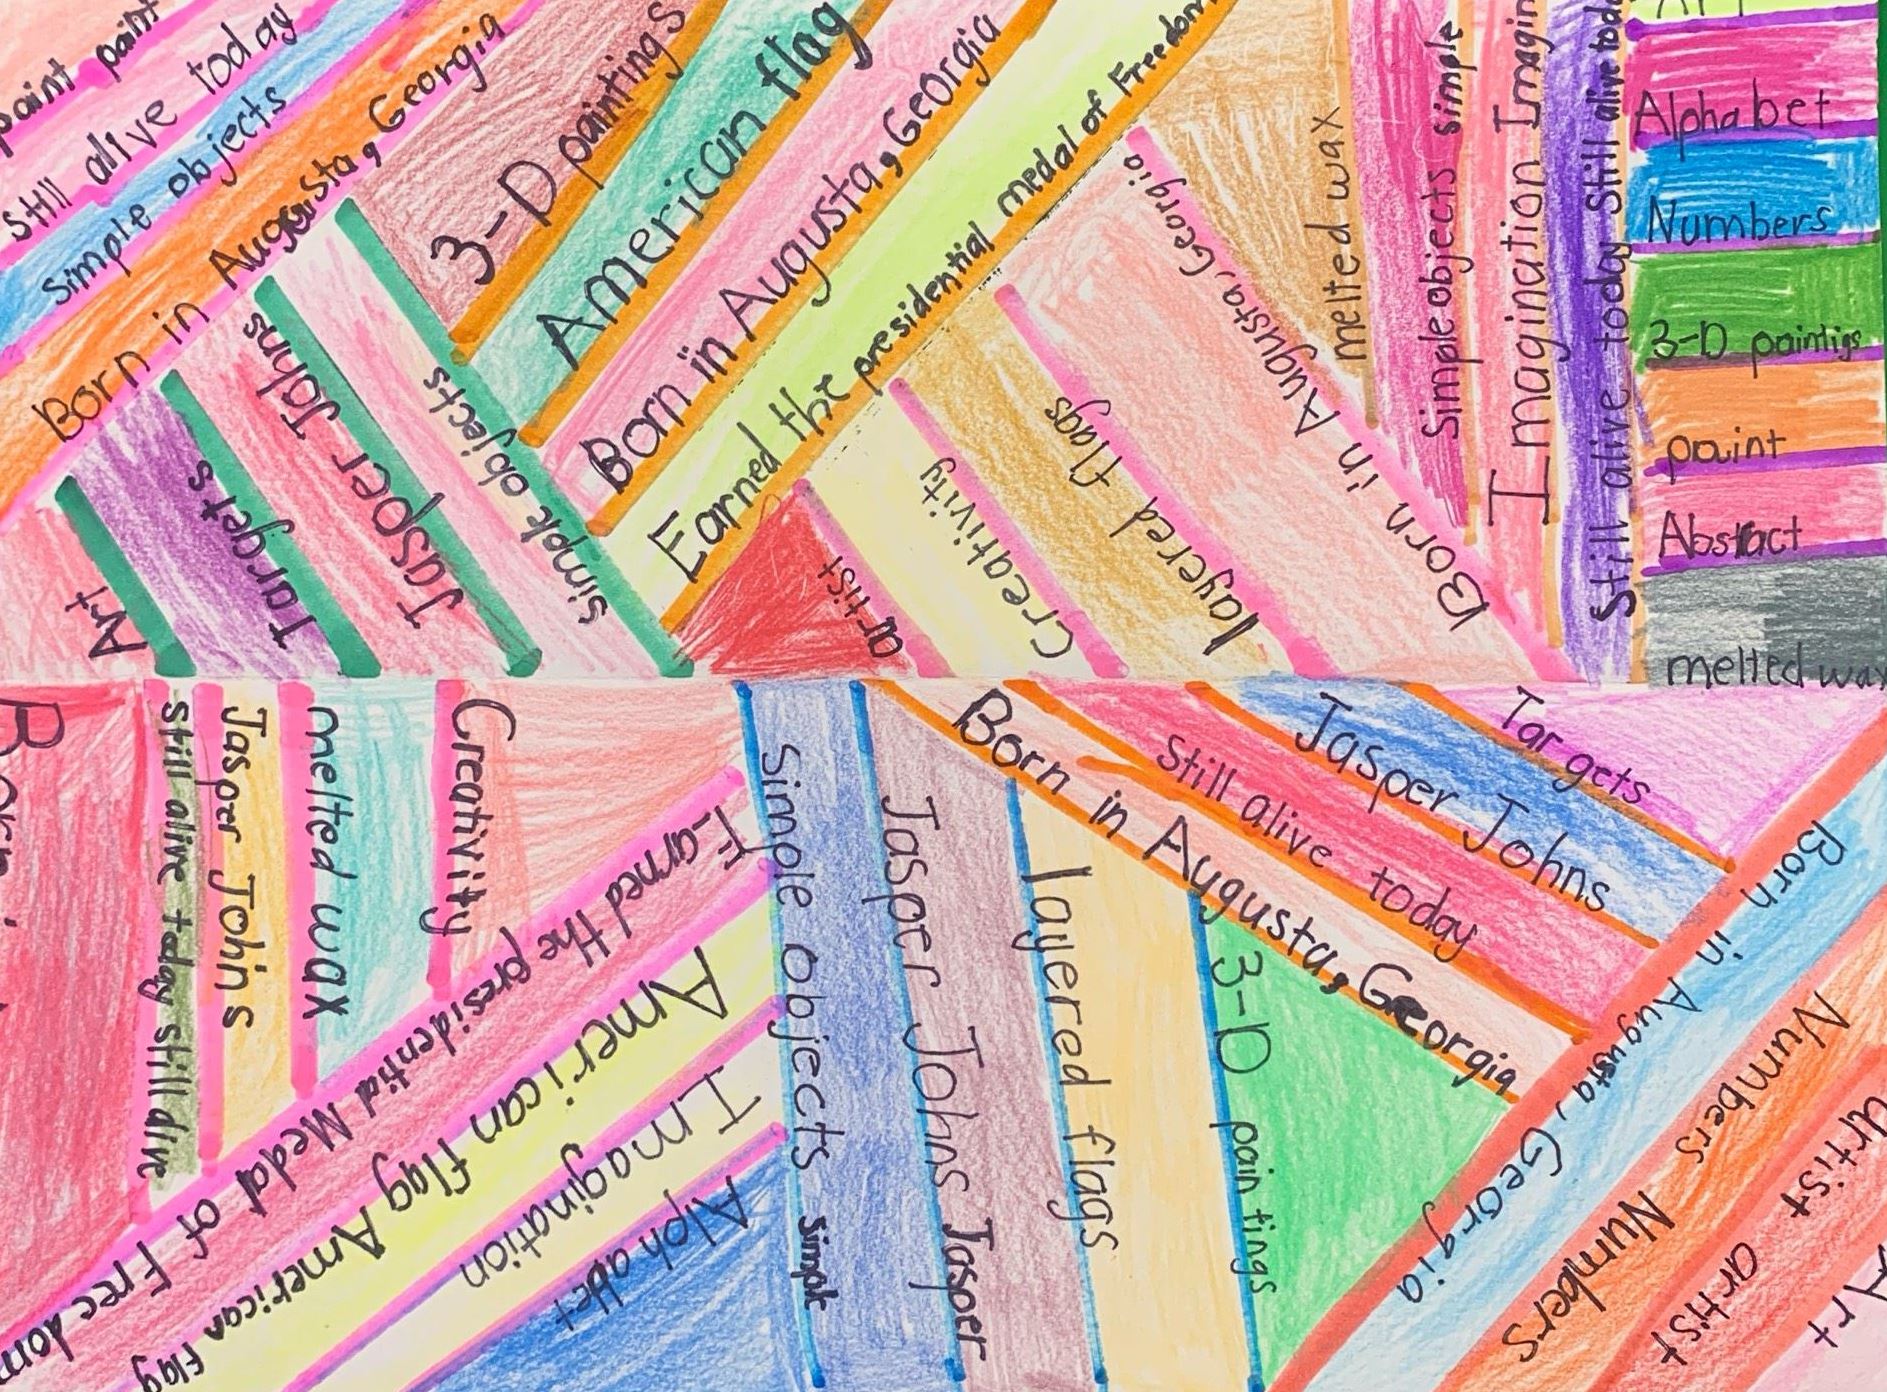 paint paint
Still alive today
Simple objects
Born in Augusta, Georgia
3-D paintings
American flag
Born in Augusta, Georgia
Earned the presidential medal of Freedom
Art
Targets
Jasper Johns
Simple objects
artist
Creativity
layered flags
Born in Augusta, Georgia
melted wax
Simple objects simple
Imagination Imagin
Still alive today Still alive toda
Alphabet
Numbers
3-D paintigs
paint
Abstract
melted wax
still alive today still alive
Jasper Johns
melted wax
Creativity
Earned the presidential Medal of Freedom
American flag American flag
Imagination
Alphabet
Simple objects simple
Jasper Johns Jasper
layered flags
3-D paintings
Born in Augusta, Georgia
Still alive today
Jasper Johns
Targets
Born in Augusta, Georgia
Numbers Numbers
artist artist
Art